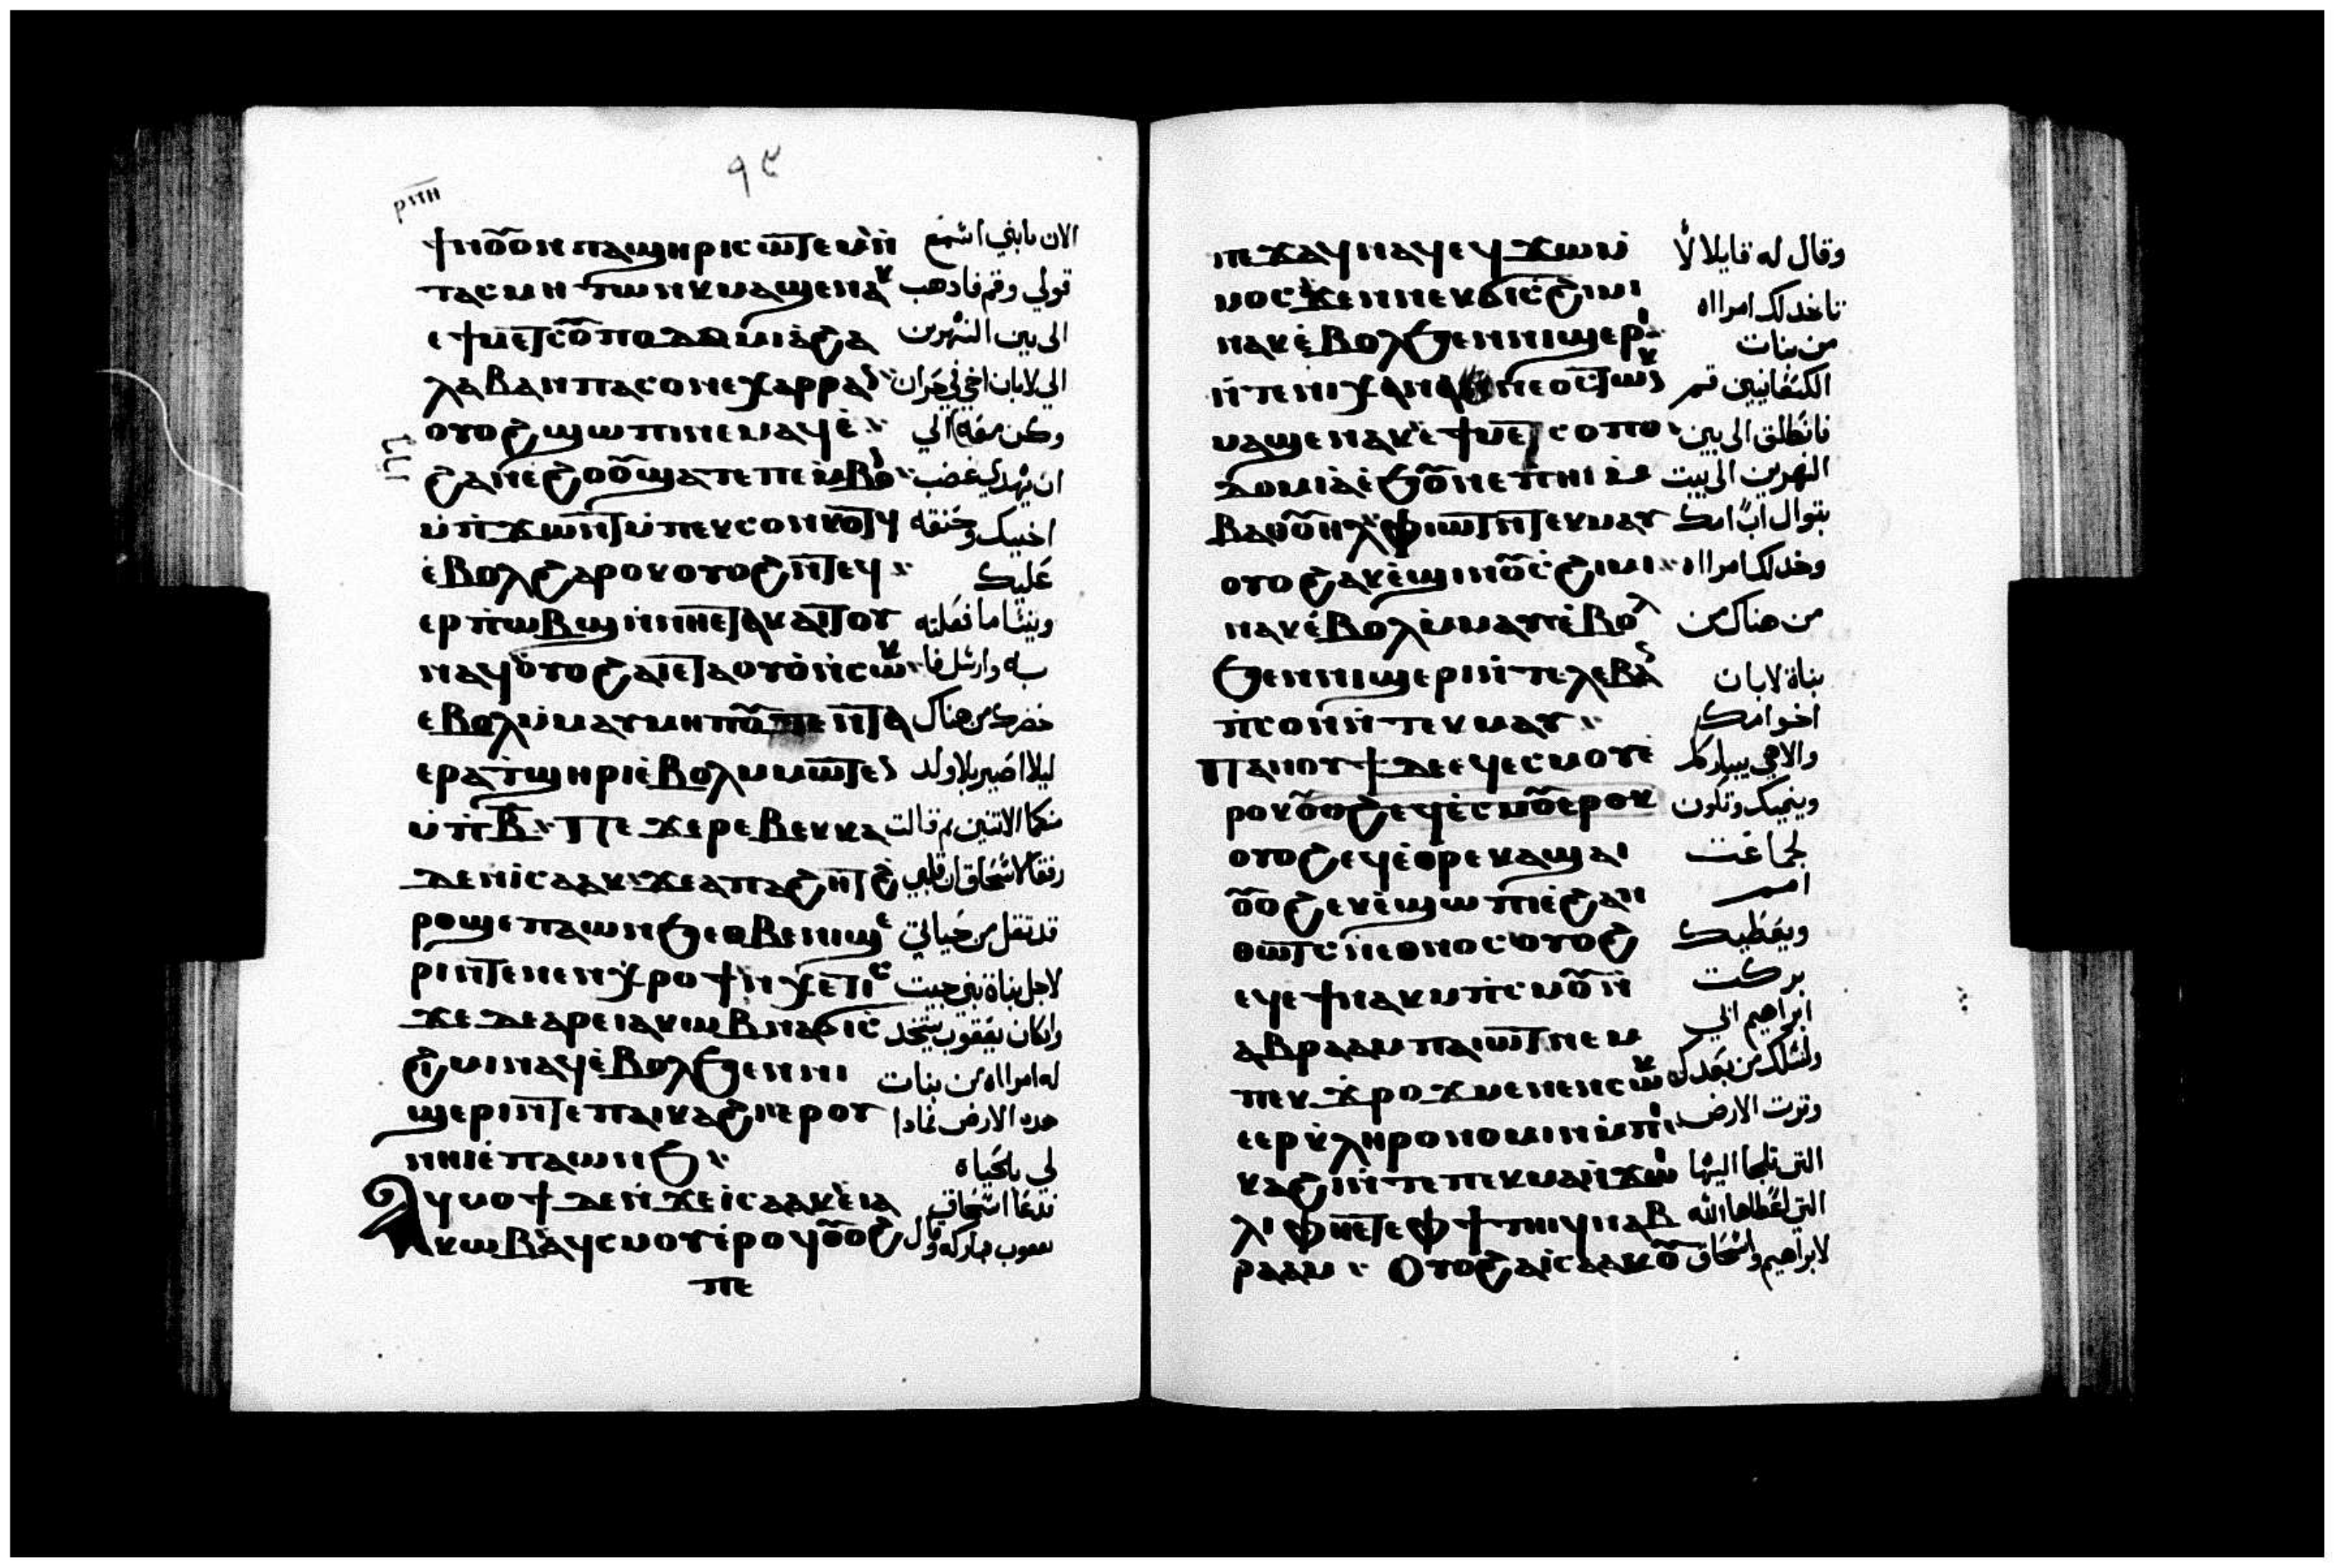 ⲣⲓⲡⲏ
٩٤
ϯⲛⲟⲩⲟⲛ ⲡⲁϣⲏⲣⲓ ⲥⲱⲧⲉⲙ ⲛ̀ الان يابني اسمع
ⲧⲁⲥⲙⲏ ⲧⲱⲛⲕ ⲙⲁϣⲉⲛⲁⲕ قولي وقم فادهب
ⲉϯⲙⲉⲧⲥⲟⲡⲟⲇⲁⲙⲓⲁ ϩⲁ الى بين النهرين
ⲗⲁⲃⲁⲛ ⲡⲁⲥⲟⲛ ⲉⲭⲁⲣⲣⲁⲛ الي لابان اخي لي حران
ⲟⲩⲟϩ ϣⲱⲡⲓ ⲛⲉⲙⲁϥ ⲉ̀ وكن معه الي
ϩⲁⲛⲉϩⲟⲟⲩ ϣⲁⲧⲉ ⲡⲉⲙⲃⲟⲛ ان يهدي غضب
ⲙ̀ⲡϫⲱⲛⲧ ⲙ̀ⲡⲉⲕⲥⲟⲛ ⲕⲟⲧϥ اخيك وحنقه
ⲉ̀ⲃⲟⲗϩⲁⲣⲟⲕ ⲟⲩⲟϩ ⲛ̀ⲧⲉϥ عليك
ⲉⲣⲡⲱⲃϣ ⲛ̀ⲛⲏⲉⲧⲁⲕⲁⲓⲧⲟⲩ وينسا ما فعلته
ⲛⲁϥ ⲟⲩⲟϩ ⲁⲓⲉⲧⲁⲟⲩⲟ ⲛ̀ⲥⲱⲕ به وارسل فا
ⲉⲃⲟⲗⲙ̀ⲙⲁⲩ ⲙⲏⲡⲟⲧⲉ ⲛ̀ⲧⲁ من هناك
ⲉⲣⲁⲧϣⲏⲣⲓ ⲉ̀ⲃⲟⲗ ⲙⲙⲱⲧⲉⲛ ليلا اصير بلا ولد
ⲙ̀ⲡⲃ̅ Ⲡⲉϫⲉ ⲣⲉⲃⲉⲕⲕⲁ منكما الاتنين تم قالت
ⲇⲉ ⲛ̀ⲓⲥⲁⲁⲕ ϫⲉ ⲁⲡⲁϩⲏⲧ ϩ̀ رفقا لاسحاق ان قلبي
ⲣⲟϣ ⲉⲡⲁⲱⲛϧ ⲉⲑⲃⲉ ⲛⲓϣⲉ قد تقل من حياتي
ⲣⲓ ⲛ̀ⲧⲉ ⲛⲉⲛⲭⲣⲟϯ ⲛ̀ⲭⲉⲧ ⲓⲥ لاجل بناة بني حيت
ϫⲉ ⲇⲉ ⲁⲣⲉ ⲓⲁⲕⲱⲃ ⲛⲁϭⲓ ⲥ وان كان يعقوب يتخد
ϩⲓⲙⲓ ⲛⲁϥ ⲉ̀ⲃⲟⲗϧⲉⲛ ⲛⲓ له امرااه من بنات
ϣⲉⲣⲓ ⲛ̀ⲧⲉ ⲡⲁⲓⲕⲁϩⲓ ⲉⲣⲟⲩ هده الارض فمادا
ⲛⲏⲓ ⲉ̀ⲡⲁⲱⲛϧ لي بالحياه
Ⲁϥⲙⲟⲩϯ ⲇⲉ ⲛ̀ϫⲉ ⲓⲥⲁⲁⲕ ⲉ̀ⲓⲁ فدعا اسحاق
ⲕⲱⲃ ⲁ̀ϥⲥⲙⲟⲩ ⲉ̀ⲣⲟϥ ⲟⲩⲟϩ يعقوب فباركه وقال
ⲡⲉ
ⲡⲉϫⲁϥ ⲛⲁϥ ⲉϥϫⲱ ⲙ̀ وقال له قايلا لا
ⲙⲟⲥ ϫⲉ ⲛⲛⲉⲕϭⲓ ⲥϩⲓⲙⲓ تاخد لك امرااه
ⲛⲁⲕ ⲉ̀ⲃⲟⲗϧⲉⲛ ⲛⲓϣⲉⲣⲓ من بنات
ⲛ̀ⲧⲉ ⲛⲓⲭⲁⲛⲁⲛⲉⲟⲥ ⲧⲱⲛⲕ الكنعانيين قم
ⲙⲁϣⲉⲛⲁⲕ ⲉ̀ϯⲙⲉⲥⲟⲡⲟ فانطلق الى بين
ⲇⲟⲙⲓⲁ ⲉ̀ϧⲟⲩⲛ ⲉⲡⲏⲓ ⲙ̀ النهرين الى بيت
ⲃⲁⲑⲟⲩⲏⲗ ⲫⲓⲱⲧ ⲛ̀ⲧⲉⲕⲙⲁⲩ بتوال اب امك
ⲟⲩⲟϩ ⲁⲕⲉ̀ϣⲓⲛⲟⲩⲥ̀ϩⲓⲙⲓ وخد لك امرااه
ⲛⲁⲕ ⲉ̀ⲃⲟⲗⲙ̀ⲙⲁⲩ ⲉ̀ⲃⲟⲗ من هناك من
ϧⲉⲛ ⲛⲓϣⲉⲣⲓ ⲛ̀ⲧⲉ ⲗⲉⲃⲁⲛ بناة لابان
ⲡ̀ⲥⲟⲛ ⲛ̀ⲧⲉⲕⲙⲁⲩ اخو امك
Ⲡⲁⲛⲟⲩϯ ⲇⲉ ⲉϥⲉⲥⲙⲟⲩ ⲉ̀ والاهي يبارك
ⲣⲟⲕ ⲟⲩⲟϩ ⲉϥⲉ̀ⲥⲙⲟⲩ ⲉⲣⲟⲕ وينميك وتكون
ⲟⲩⲟϩ ⲉϥⲉ̀ⲑⲣⲉⲕⲁϣⲁⲓ لجماعت
ⲟⲩⲟϩ ⲉⲕⲉ̀ϣⲱⲡⲓ ⲉ̀ϩⲁⲛ امم
ⲑⲱⲧⲥ ⲛⲉⲑⲛⲟⲥ ⲟⲩⲟϩ ويعطيك
ⲉϥⲉϯ ⲛⲁⲕ ⲙ̀ⲡⲥⲙⲟⲩ ⲛ̀ بركت
ⲁⲃⲣⲁⲁⲙ ⲡⲁⲓⲱⲧ ⲛⲉⲙ ابراهيم ابي
ⲡⲉⲕϫⲣⲟϫ ⲙⲉⲛⲉⲛⲥⲱⲕ ولنسلك من بعدك
ⲉⲉⲣⲕ̀ⲗⲏⲣⲟⲛⲟⲙⲓⲛ ⲙ̀ⲡⲓ وترت الارض
ⲕⲁϩⲓ ⲛ̀ⲧⲉ ⲡⲉⲕⲙⲁⲛ̀ϫⲱⲓ التى تلجا اليها
ⲗⲓ ⲫⲏⲉⲧⲉ ⲫϯ ⲧⲏⲓϥ ⲛⲁⲃ التي اعطاها الله
ⲣⲁⲁⲙ Ⲟⲩⲟϩ ⲁ̀ⲓⲥⲁⲁⲕ ⲟⲩ لابراهيم واسحاق